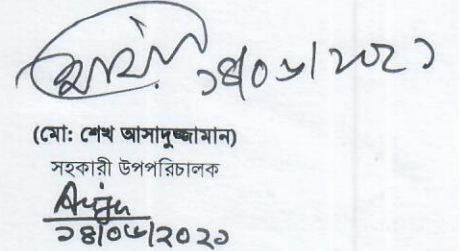 ১৪/০৬/২০২১
(মো: শেখ আসাদুজ্জামান)
সহকারী উপপরিচালক
১৪/০৬/২০২১